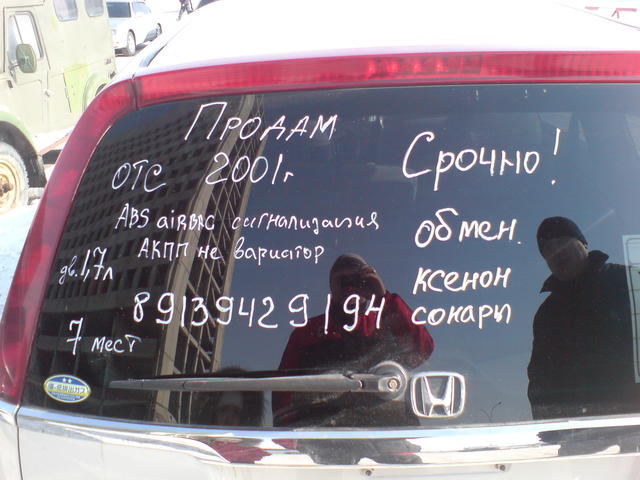 Продам
ОТС 2001г
ABS aiRBAG сигнализация
АКПП не вариатор
дв. 1,7л
89139429194
7 мест
Срочно!
обмен.
ксенон
сонары